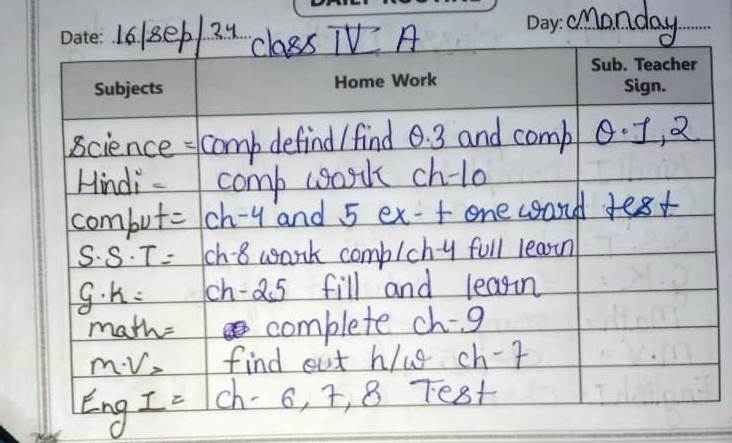 DAILY ROUTINE
Date: 16/sep/24 class IV: A Day: Monday
Subjects Home Work Sub. Teacher Sign.
Science = comp defind/find Q.3 and comp Q.1,2
Hindi - comp work ch-10
comput = ch-4 and 5 ex- t one word test
S.S.T = ch-8 work comp/ch-4 full learn
G.k = ch-25 fill and learn
math = complete ch-9
m.V = find out h/w ch-7
Eng I = ch- 6, 7, 8 Test